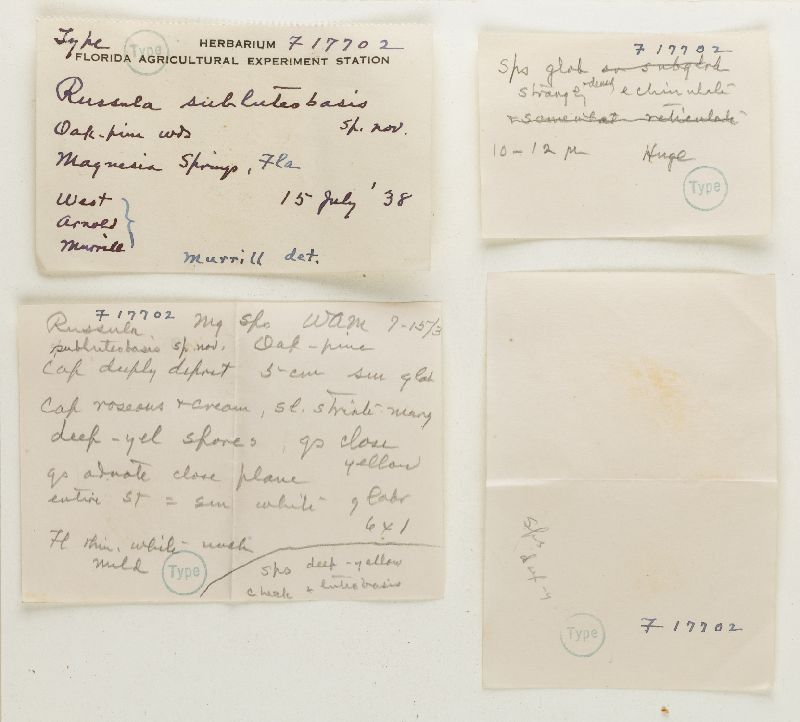 Type Type HERBARIUM F 17702
FLORIDA AGRICULTURAL EXPERIMENT STATION
Russula subluteobasis
Oak-pine wds sp. nov.
Magnesia Springs, Fla
West 15 July '38
Arnold
Murrill
Murrill det.
F 17702
Sps glob or subglob
strongly + densely echinulate
+ somewhat reticulate
10-12 µ Huge
Type
F 17702
Russula Mg Sps WAM 7-15/3
subluteobasis sp. nov. Oak-pine
Cap deeply deprest 5 cm sm glab
Cap roseous + cream, sl. striate marg
deep-yel spores, gs close
yellow
gs adnate close plane
entire St = sm white glabr
6x1
Fl thin, white
mild Type
sps deep-yellow
check luteobasis
sps
deep-y
Type F 17702